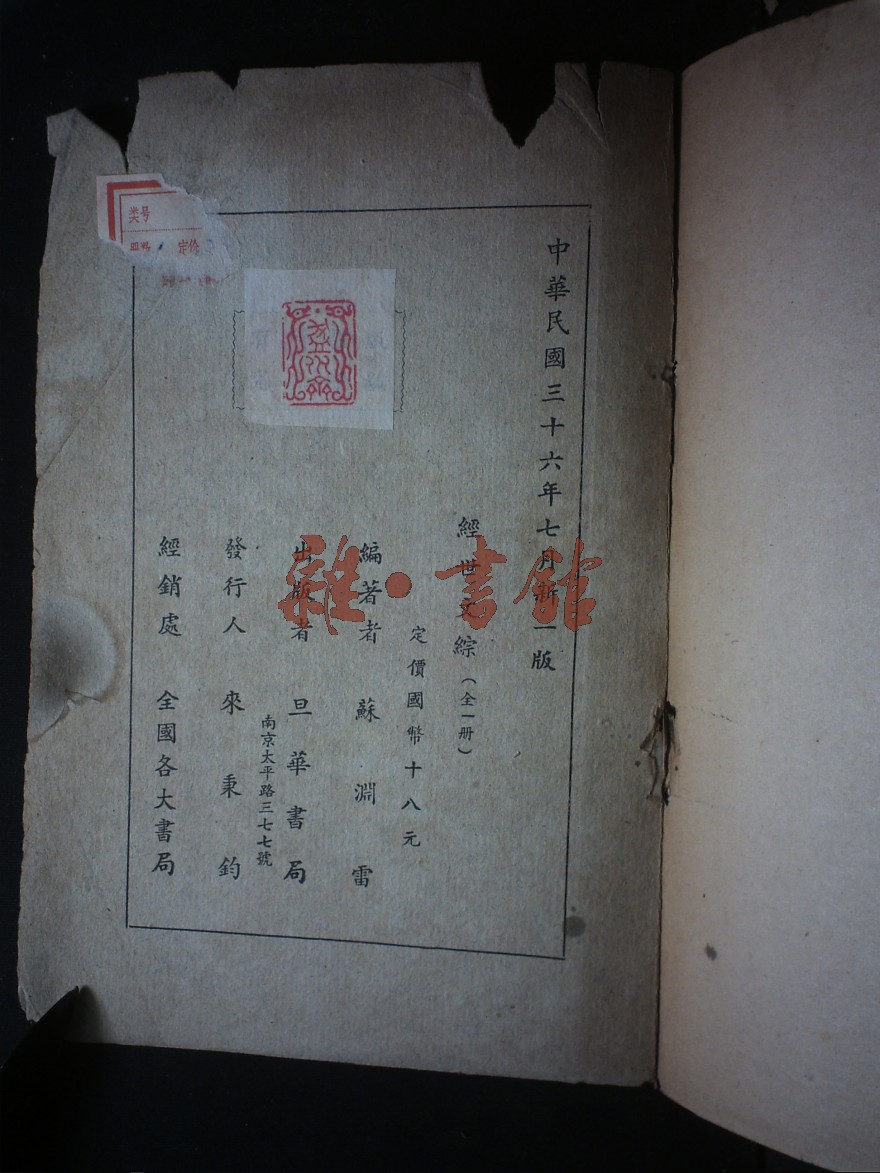 中華民國三十六年七月新一版
經世文綜（全一册）
定價國幣十八元
編著者 蘇淵雷
出版者 旦華書局
南京太平路三七七號
發行人 來秉鈞
經銷處 全國各大書局
类号
定价
雜·書館